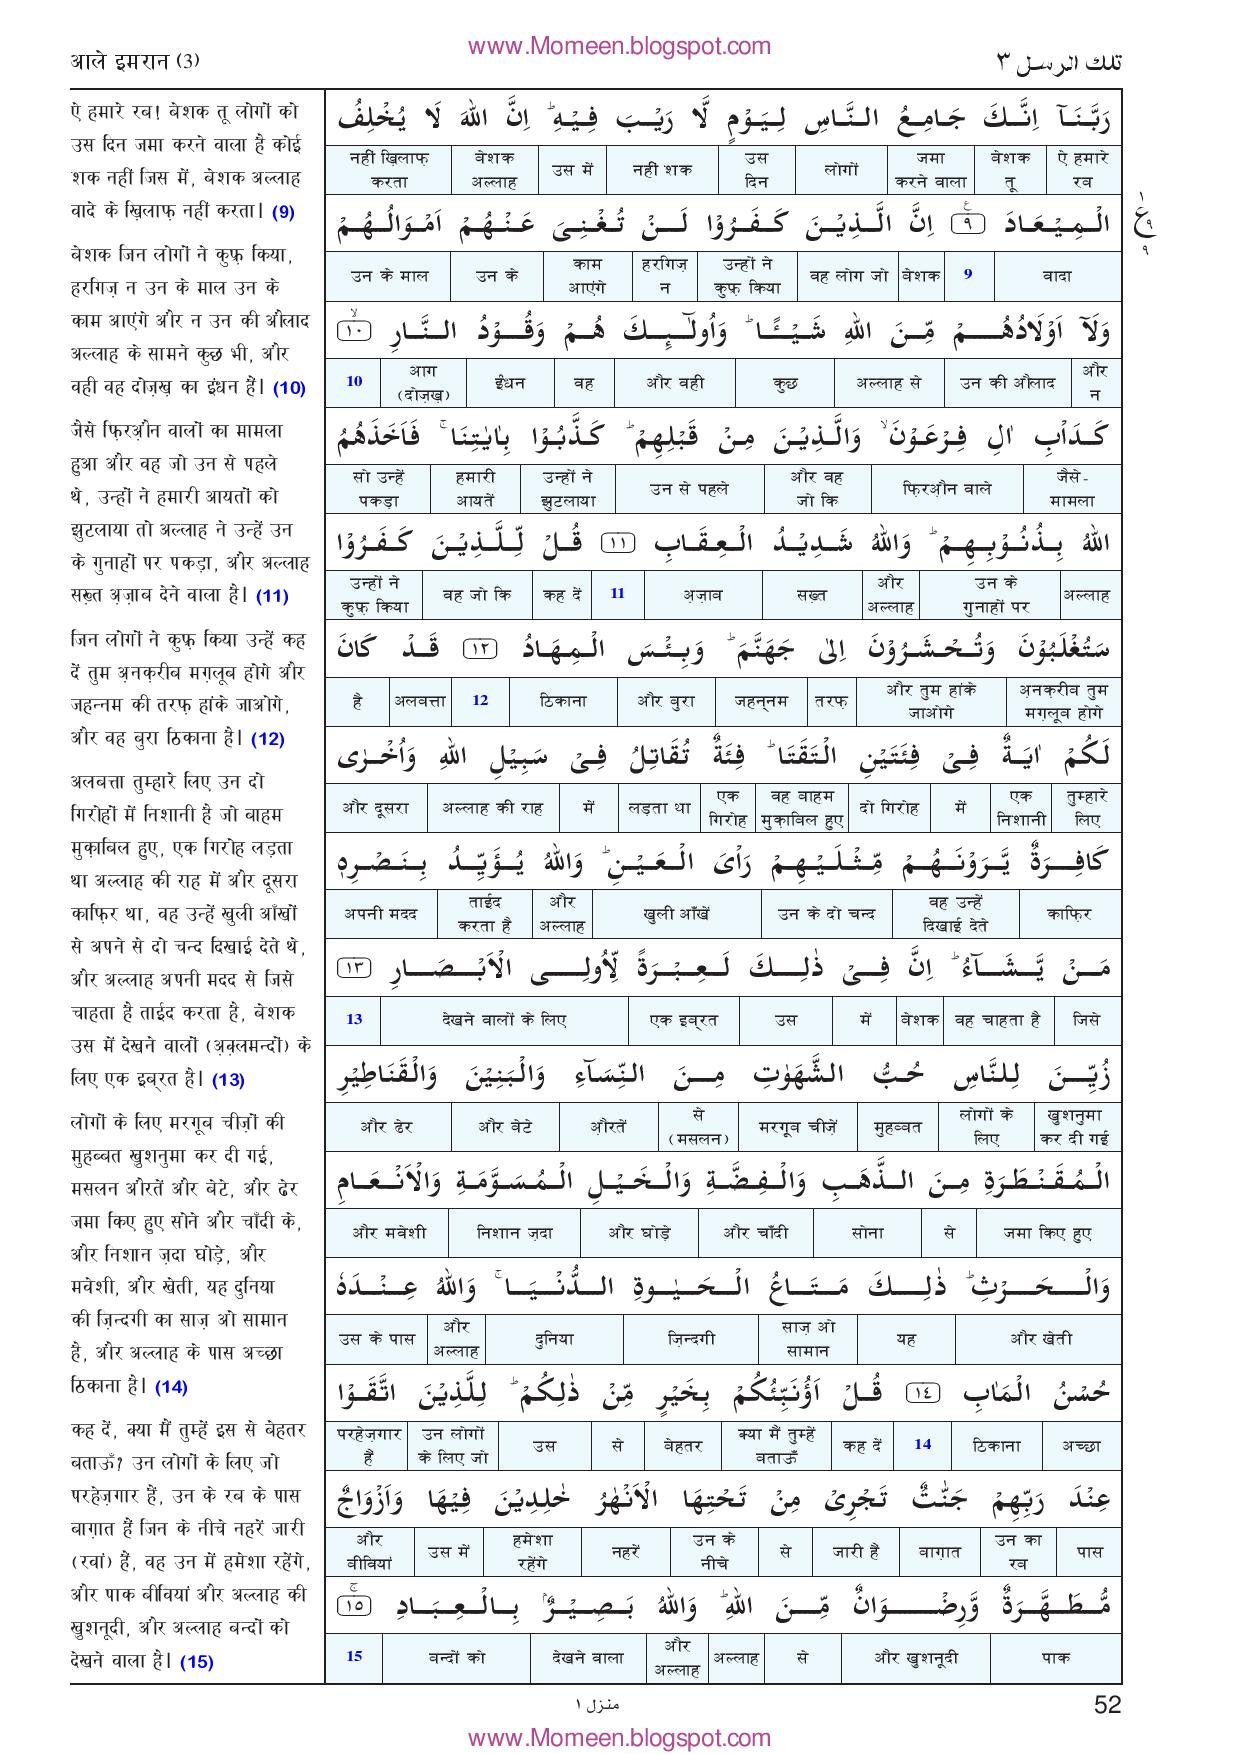 www.Momeen.blogspot.com
आले इमरान (3)
تلك الرسل ٣
ऐ हमारे रब! बेशक तू लोगों को
उस दिन जमा करने वाला है कोई
शक नहीं जिस में, बेशक अल्लाह
वादे के ख़िलाफ़ नहीं करता। (9)
बेशक जिन लोगों ने कुफ़्र किया,
हरगिज़ न उन के माल उन के
काम आएंगे और न उन की औलाद
अल्लाह के सामने कुछ भी, और
वही वह दोज़ख़ का इंधन हैं। (10)
जैसे फ़िरऔ़न वालों का मामला
हुआ और वह जो उन से पहले
थे, उन्हों ने हमारी आयतों को
झुटलाया तो अल्लाह ने उन्हें उन
के गुनाहों पर पकड़ा, और अल्लाह
सख़्त अ़ज़ाब देने वाला है। (11)
जिन लोगों ने कुफ़्र किया उन्हें कह
दें तुम अ़नक़रीब मग़लूब होगे और
जहन्नम की तरफ़ हांके जाओगे,
और वह बुरा ठिकाना है। (12)
अलबत्ता तुम्हारे लिए उन दो
गिरोहों में निशानी है जो बाहम
मुक़ाबिल हुए, एक गिरोह लड़ता
था अल्लाह की राह में और दूसरा
काफ़िर था, वह उन्हें खुली आँखों
से अपने से दो चन्द दिखाई देते थे,
और अल्लाह अपनी मदद से जिसे
चाहता है ताईद करता है, बेशक
उस में देखने वालों (अ़क़्लमन्दों) के
लिए एक इब्रत है। (13)
लोगों के लिए मरगूब चीज़ों की
मुहब्बत खुशनुमा कर दी गई,
मसलन औरतें और बेटे, और ढेर
जमा किए हुए सोने और चाँदी के,
और निशान ज़दा घोड़े, और
मवेशी, और खेती, यह दुनिया
की ज़िन्दगी का साज़ ओ सामान
है, और अल्लाह के पास अच्छा
ठिकाना है। (14)
कह दें, क्या मैं तुम्हें इस से बेहतर
बताऊँ? उन लोगों के लिए जो
परहेज़गार हैं, उन के रब के पास
बाग़ात हैं जिन के नीचे नहरें जारी
(रवां) हैं, वह उन में हमेशा रहेंगे,
और पाक बीवियां और अल्लाह की
खुशनूदी, और अल्लाह बन्दों को
देखने वाला है। (15)
رَبَّنَآ اِنَّكَ جَامِعُ النَّاسِ لِيَوْمٍ لَّا رَيْبَ فِيْهِ ؕ اِنَّ اللّٰهَ لَا يُخْلِفُ
ऐ हमारे रब | बेशक तू | जमा करने वाला | लोगों | उस दिन | नहीं शक | उस में | बेशक अल्लाह | नहीं ख़िलाफ़ करता
الْمِيْعَادَ ٩ اِنَّ الَّذِيْنَ كَفَرُوْا لَنْ تُغْنِىَ عَنْهُمْ اَمْوَالُهُمْ
वादा | 9 | बेशक | वह लोग जो | उन्हों ने कुफ़्र किया | हरगिज़ न | काम आएंगे | उन के | उन के माल
وَلَآ اَوْلَادُهُمْ مِّنَ اللّٰهِ شَيْـًٔا ؕ وَاُولٰٓئِكَ هُمْ وَقُوْدُ النَّارِ ١٠
और न | उन की औलाद | अल्लाह से | कुछ | और वही | वह | ईंधन | आग (दोज़ख़) | 10
كَدَاْبِ اٰلِ فِرْعَوْنَ ۙ وَالَّذِيْنَ مِنْ قَبْلِهِمْ ؕ كَذَّبُوْا بِاٰيٰتِنَا ۚ فَاَخَذَهُمُ
जैसे- मामला | फ़िरऔ़न वाले | और वह जो कि | उन से पहले | उन्हों ने झुटलाया | हमारी आयतें | सो उन्हें पकड़ा
اللّٰهُ بِذُنُوْبِهِمْ ؕ وَاللّٰهُ شَدِيْدُ الْعِقَابِ ١١ قُلْ لِّلَّذِيْنَ كَفَرُوْا
अल्लाह | उन के गुनाहों पर | और अल्लाह | सख़्त | अ़ज़ाब | 11 | कह दें | वह जो कि | उन्हों ने कुफ़्र किया
سَتُغْلَبُوْنَ وَتُحْشَرُوْنَ اِلٰى جَهَنَّمَ ؕ وَبِئْسَ الْمِهَادُ ١٢ قَدْ كَانَ
अ़नक़रीब तुम मग़लूब होगे | और तुम हांके जाओगे | तरफ़ | जहन्नम | और बुरा | ठिकाना | 12 | अलबत्ता | है
لَكُمْ اٰيَةٌ فِىْ فِئَتَيْنِ الْتَقَتَا ؕ فِئَةٌ تُقَاتِلُ فِىْ سَبِيْلِ اللّٰهِ وَاُخْرٰى
तुम्हारे लिए | एक निशानी | में | दो गिरोह | वह बाहम मुक़ाबिल हुए | एक गिरोह | लड़ता था | में | अल्लाह की राह | और दूसरा
كَافِرَةٌ يَّرَوْنَهُمْ مِّثْلَيْهِمْ رَاْىَ الْعَيْنِ ؕ وَاللّٰهُ يُؤَيِّدُ بِنَصْرِهٖ
काफ़िर | वह उन्हें दिखाई देते | उन के दो चन्द | खुली आँखें | और अल्लाह | ताईद करता है | अपनी मदद
مَنْ يَّشَآءُ ؕ اِنَّ فِىْ ذٰلِكَ لَعِبْرَةً لِّاُولِى الْاَبْصَارِ ١٣
जिसे | वह चाहता है | बेशक | में | उस | एक इब्रत | देखने वालों के लिए | 13
زُيِّنَ لِلنَّاسِ حُبُّ الشَّهَوٰتِ مِنَ النِّسَآءِ وَالْبَنِيْنَ وَالْقَنَاطِيْرِ
खुशनुमा कर दी गई | लोगों के लिए | मुहब्बत | मरगूब चीज़ें | से (मसलन) | औ़रतें | और बेटे | और ढेर
الْمُقَنْطَرَةِ مِنَ الذَّهَبِ وَالْفِضَّةِ وَالْخَيْلِ الْمُسَوَّمَةِ وَالْاَنْعَامِ
जमा किए हुए | से | सोना | और चाँदी | और घोड़े | निशान ज़दा | और मवेशी
وَالْحَرْثِ ؕ ذٰلِكَ مَتَاعُ الْحَيٰوةِ الدُّنْيَا ۚ وَاللّٰهُ عِنْدَهٗ
और खेती | यह | साज़ ओ सामान | ज़िन्दगी | दुनिया | और अल्लाह | उस के पास
حُسْنُ الْمَاٰبِ ١٤ قُلْ اَؤُنَبِّئُكُمْ بِخَيْرٍ مِّنْ ذٰلِكُمْ ؕ لِلَّذِيْنَ اتَّقَوْا
अच्छा | ठिकाना | 14 | कह दें | क्या मैं तुम्हें बताऊँ | बेहतर | से | उस | उन लोगों के लिए जो | परहेज़गार हैं
عِنْدَ رَبِّهِمْ جَنّٰتٌ تَجْرِىْ مِنْ تَحْتِهَا الْاَنْهٰرُ خٰلِدِيْنَ فِيْهَا وَاَزْوَاجٌ
पास | उन का रब | बाग़ात | जारी है | से | उन के नीचे | नहरें | हमेशा रहेंगे | उस में | और बीवियां
مُّطَهَّرَةٌ وَّرِضْوَانٌ مِّنَ اللّٰهِ ؕ وَاللّٰهُ بَصِيْرٌۢ بِالْعِبَادِ ١٥
पाक | और खुशनूदी | से | अल्लाह | और अल्लाह | देखने वाला | बन्दों को | 15
ع
٩
منزل ١
52
www.Momeen.blogspot.com